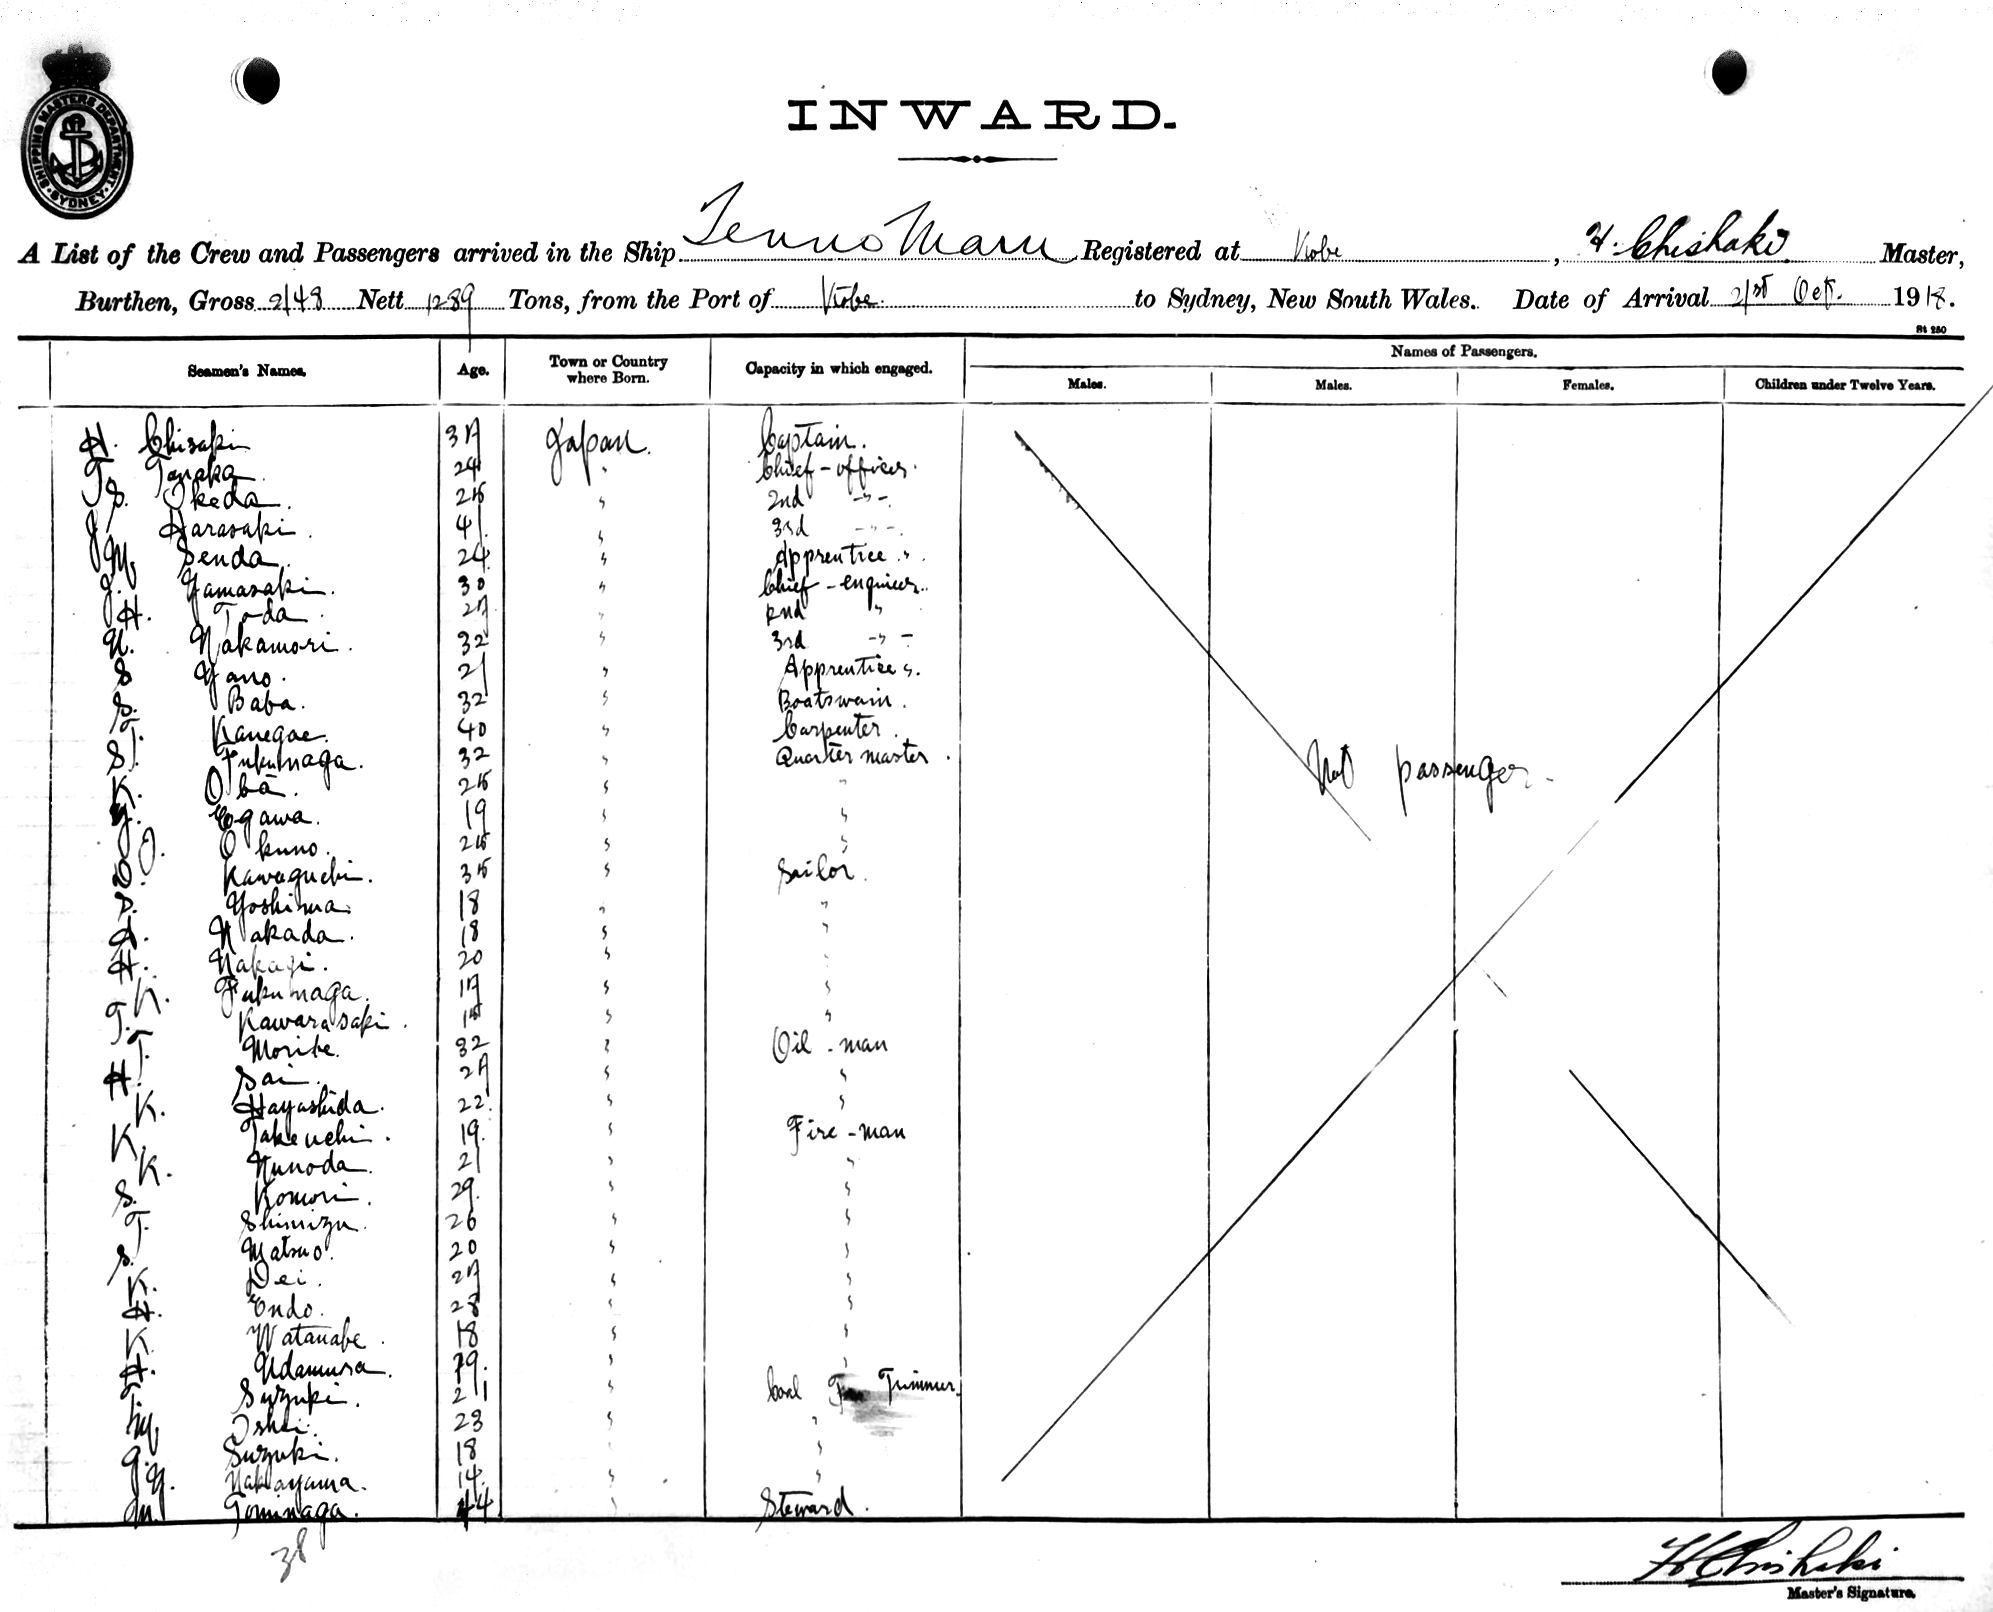 SHIPPING MASTERS DEPARTMENT · SYDNEY ·
INWARD.
A List of the Crew and Passengers arrived in the Ship Tenno Maru Registered at Kobe, H. Chishaki Master,
Burthen, Gross 2148 Nett 1289 Tons, from the Port of Kobe. to Sydney, New South Wales. Date of Arrival 21st Oct. 1918.
St 250
Seamen's Names. Age. Town or Country where Born. Capacity in which engaged. Names of Passengers.
Males. Males. Females. Children under Twelve Years.
H. Chisaki 37 Japan. Captain.
T. Tanaka 24 " Chief-officer.
S. Ikeda. 25 " 2nd -"-.
J. Harasaki. 41. " 3rd -"-.
M. Senda. 24. " Apprentice ".
J. Yamasaki. 30 " Chief-engineer..
H. Toda 27 " 2nd "
N. Nakamori. 32 " 3rd -"-
S Yano. 21 " Apprentice ".
S. Baba. 32 " Boatswain.
T. Kanegae. 40 " Carpenter.
S. Fukunaga. 32 " Quarter master.
K. Oba. 25 " "
Y. Egawa. 19 " "
J. Okuno. 25 " "
Kawaguchi. 35 " Sailor.
S. Yoshima. 18 " "
Nakada. 18 " "
H. Nakagi. 20 " "
K. Fukunaga. 17 " "
T. Kawarasaki. 15 " "
T. Moribe. 32 " Oil-man
H. Sai. 27 " "
K. Hayashida. 22. " "
K. Takeuchi. 19. " Fire-man
K. Nunoda. 21 " "
S. Komori. 29. " "
T. Shimizu. 26 " "
S. Matsuo. 20 " "
K. Dei. 27 " "
H. Endo. 28 " "
K. Watanabe. 18 " "
H. Udamura. 19. " "
T. Suzuki. 21 " Coal Trimmer.
M. Ishii. 23 " "
G. Suzuki. 18 " "
Y. Nakayama. 14. " "
M. Tominaga. 44 " Steward.
passenger.
38
H Chishaki
Master's Signature.